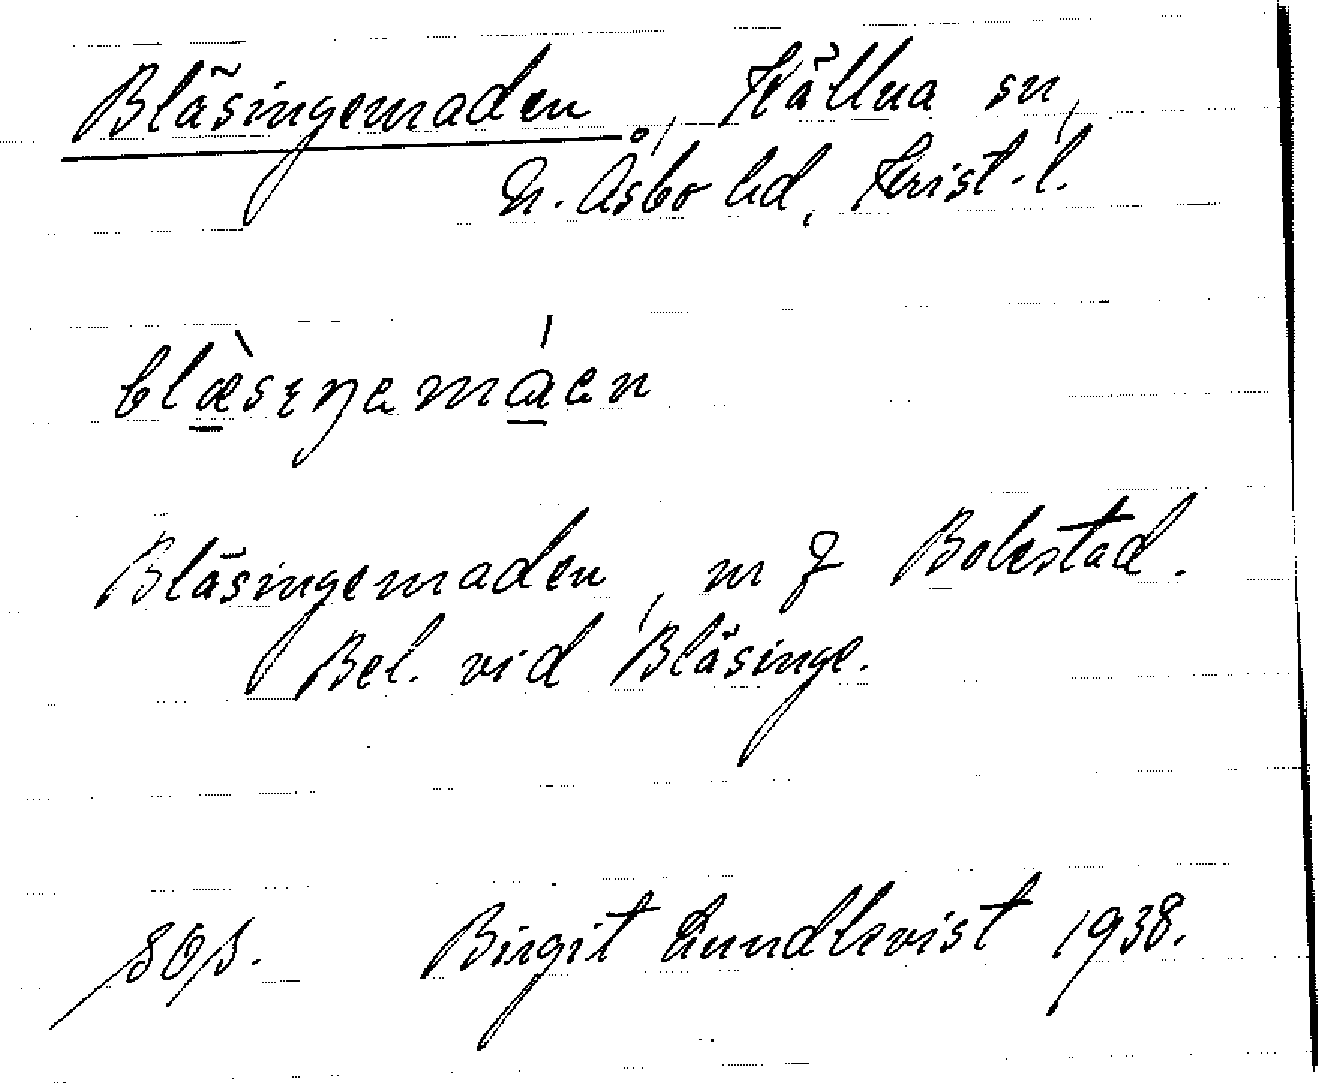 Bläsingemaden, Källna sn,
N. Åsbo hd, Krist. l.
blæ̀sıŋemáen
Bläsingemaden, m f Bolestad.
Bel. vid Bläsinge.
Birgit Lundkvist 1938.